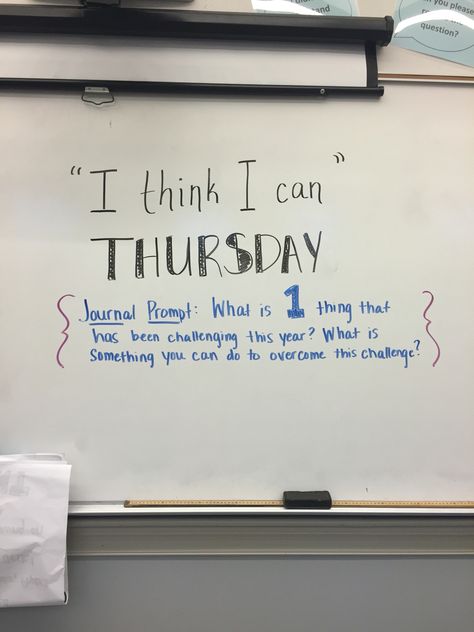 you please
question?
"I think I can"
THURSDAY
Journal Prompt: What is 1 thing that
has been challenging this year? What is
something you can do to overcome this challenge?